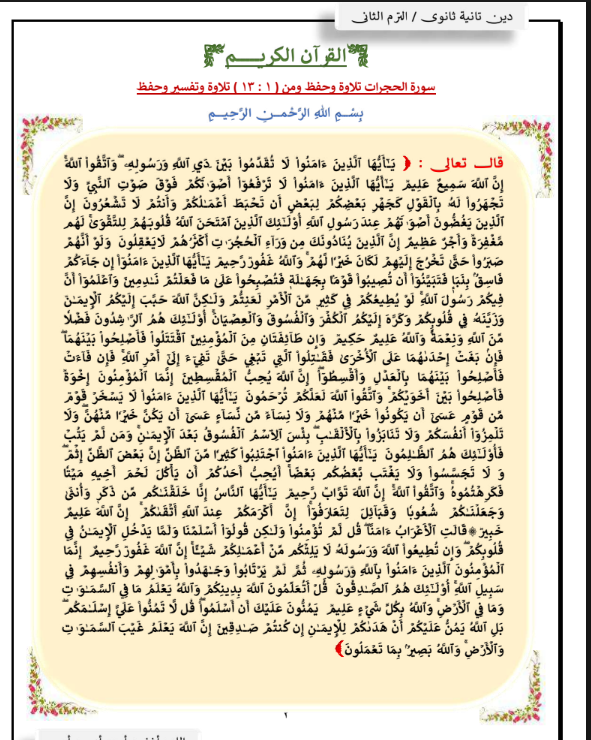 دين تانية ثانوى / الترم الثانى
القرآن الكريــــم
سورة الحجرات تلاوة وحفظ ومن ( ١ : ١٣ ) تلاوة وتفسير وحفظ
بِسْمِ اللهِ الرَّحْمـنِ الرَّحِيـمِ
قالــ تعالى : ﴿ يَـٰٓأَيُّهَا ٱلَّذِينَ ءَامَنُوا۟ لَا تُقَدِّمُوا۟ بَيْنَ يَدَىِ ٱللَّهِ وَرَسُولِهِۦ ۖ وَٱتَّقُوا۟ ٱللَّهَ ۚ
إِنَّ ٱللَّهَ سَمِيعٌ عَلِيمٌ يَـٰٓأَيُّهَا ٱلَّذِينَ ءَامَنُوا۟ لَا تَرْفَعُوٓا۟ أَصْوَٰتَكُمْ فَوْقَ صَوْتِ ٱلنَّبِىِّ وَلَا
تَجْهَرُوا۟ لَهُۥ بِٱلْقَوْلِ كَجَهْرِ بَعْضِكُمْ لِبَعْضٍ أَن تَحْبَطَ أَعْمَـٰلُكُمْ وَأَنتُمْ لَا تَشْعُرُونَ إِنَّ
ٱلَّذِينَ يَغُضُّونَ أَصْوَٰتَهُمْ عِندَ رَسُولِ ٱللَّهِ أُو۟لَـٰٓئِكَ ٱلَّذِينَ ٱمْتَحَنَ ٱللَّهُ قُلُوبَهُمْ لِلتَّقْوَىٰ ۚ لَهُم
مَّغْفِرَةٌ وَأَجْرٌ عَظِيمٌ إِنَّ ٱلَّذِينَ يُنَادُونَكَ مِن وَرَآءِ ٱلْحُجُرَٰتِ أَكْثَرُهُمْ لَا يَعْقِلُونَ وَلَوْ أَنَّهُمْ
صَبَرُوا۟ حَتَّىٰ تَخْرُجَ إِلَيْهِمْ لَكَانَ خَيْرًا لَّهُمْ ۚ وَٱللَّهُ غَفُورٌ رَّحِيمٌ يَـٰٓأَيُّهَا ٱلَّذِينَ ءَامَنُوٓا۟ إِن جَآءَكُمْ
فَاسِقٌۢ بِنَبَإٍ فَتَبَيَّنُوٓا۟ أَن تُصِيبُوا۟ قَوْمًۢا بِجَهَـٰلَةٍ فَتُصْبِحُوا۟ عَلَىٰ مَا فَعَلْتُمْ نَـٰدِمِينَ وَٱعْلَمُوٓا۟ أَنَّ
فِيكُمْ رَسُولَ ٱللَّهِ ۚ لَوْ يُطِيعُكُمْ فِى كَثِيرٍ مِّنَ ٱلْأَمْرِ لَعَنِتُّمْ وَلَـٰكِنَّ ٱللَّهَ حَبَّبَ إِلَيْكُمُ ٱلْإِيمَـٰنَ
وَزَيَّنَهُۥ فِى قُلُوبِكُمْ وَكَرَّهَ إِلَيْكُمُ ٱلْكُفْرَ وَٱلْفُسُوقَ وَٱلْعِصْيَانَ ۚ أُو۟لَـٰٓئِكَ هُمُ ٱلرَّٰشِدُونَ فَضْلًا
مِّنَ ٱللَّهِ وَنِعْمَةً ۚ وَٱللَّهُ عَلِيمٌ حَكِيمٌ وَإِن طَآئِفَتَانِ مِنَ ٱلْمُؤْمِنِينَ ٱقْتَتَلُوا۟ فَأَصْلِحُوا۟ بَيْنَهُمَا ۖ
فَإِنۢ بَغَتْ إِحْدَىٰهُمَا عَلَى ٱلْأُخْرَىٰ فَقَـٰتِلُوا۟ ٱلَّتِى تَبْغِى حَتَّىٰ تَفِىٓءَ إِلَىٰٓ أَمْرِ ٱللَّهِ ۚ فَإِن فَآءَتْ
فَأَصْلِحُوا۟ بَيْنَهُمَا بِٱلْعَدْلِ وَأَقْسِطُوٓا۟ ۖ إِنَّ ٱللَّهَ يُحِبُّ ٱلْمُقْسِطِينَ إِنَّمَا ٱلْمُؤْمِنُونَ إِخْوَةٌ
فَأَصْلِحُوا۟ بَيْنَ أَخَوَيْكُمْ ۚ وَٱتَّقُوا۟ ٱللَّهَ لَعَلَّكُمْ تُرْحَمُونَ يَـٰٓأَيُّهَا ٱلَّذِينَ ءَامَنُوا۟ لَا يَسْخَرْ قَوْمٌ
مِّن قَوْمٍ عَسَىٰٓ أَن يَكُونُوا۟ خَيْرًا مِّنْهُمْ وَلَا نِسَآءٌ مِّن نِّسَآءٍ عَسَىٰٓ أَن يَكُنَّ خَيْرًا مِّنْهُنَّ ۖ وَلَا
تَلْمِزُوٓا۟ أَنفُسَكُمْ وَلَا تَنَابَزُوا۟ بِٱلْأَلْقَـٰبِ ۖ بِئْسَ ٱلِٱسْمُ ٱلْفُسُوقُ بَعْدَ ٱلْإِيمَـٰنِ ۚ وَمَن لَّمْ يَتُبْ
فَأُو۟لَـٰٓئِكَ هُمُ ٱلظَّـٰلِمُونَ يَـٰٓأَيُّهَا ٱلَّذِينَ ءَامَنُوا۟ ٱجْتَنِبُوا۟ كَثِيرًا مِّنَ ٱلظَّنِّ إِنَّ بَعْضَ ٱلظَّنِّ إِثْمٌ ۖ
وَلَا تَجَسَّسُوا۟ وَلَا يَغْتَب بَّعْضُكُم بَعْضًا ۚ أَيُحِبُّ أَحَدُكُمْ أَن يَأْكُلَ لَحْمَ أَخِيهِ مَيْتًا
فَكَرِهْتُمُوهُ ۚ وَٱتَّقُوا۟ ٱللَّهَ ۚ إِنَّ ٱللَّهَ تَوَّابٌ رَّحِيمٌ يَـٰٓأَيُّهَا ٱلنَّاسُ إِنَّا خَلَقْنَـٰكُم مِّن ذَكَرٍ وَأُنثَىٰ
وَجَعَلْنَـٰكُمْ شُعُوبًا وَقَبَآئِلَ لِتَعَارَفُوٓا۟ ۚ إِنَّ أَكْرَمَكُمْ عِندَ ٱللَّهِ أَتْقَىٰكُمْ ۚ إِنَّ ٱللَّهَ عَلِيمٌ
خَبِيرٌ ۞ قَالَتِ ٱلْأَعْرَابُ ءَامَنَّا ۖ قُل لَّمْ تُؤْمِنُوا۟ وَلَـٰكِن قُولُوٓا۟ أَسْلَمْنَا وَلَمَّا يَدْخُلِ ٱلْإِيمَـٰنُ فِى
قُلُوبِكُمْ ۖ وَإِن تُطِيعُوا۟ ٱللَّهَ وَرَسُولَهُۥ لَا يَلِتْكُم مِّنْ أَعْمَـٰلِكُمْ شَيْـًٔا ۚ إِنَّ ٱللَّهَ غَفُورٌ رَّحِيمٌ إِنَّمَا
ٱلْمُؤْمِنُونَ ٱلَّذِينَ ءَامَنُوا۟ بِٱللَّهِ وَرَسُولِهِۦ ثُمَّ لَمْ يَرْتَابُوا۟ وَجَـٰهَدُوا۟ بِأَمْوَٰلِهِمْ وَأَنفُسِهِمْ فِى
سَبِيلِ ٱللَّهِ ۚ أُو۟لَـٰٓئِكَ هُمُ ٱلصَّـٰدِقُونَ قُلْ أَتُعَلِّمُونَ ٱللَّهَ بِدِينِكُمْ وَٱللَّهُ يَعْلَمُ مَا فِى ٱلسَّمَـٰوَٰتِ
وَمَا فِى ٱلْأَرْضِ ۚ وَٱللَّهُ بِكُلِّ شَىْءٍ عَلِيمٌ يَمُنُّونَ عَلَيْكَ أَنْ أَسْلَمُوا۟ ۖ قُل لَّا تَمُنُّوا۟ عَلَىَّ إِسْلَـٰمَكُم ۖ
بَلِ ٱللَّهُ يَمُنُّ عَلَيْكُمْ أَنْ هَدَىٰكُمْ لِلْإِيمَـٰنِ إِن كُنتُمْ صَـٰدِقِينَ إِنَّ ٱللَّهَ يَعْلَمُ غَيْبَ ٱلسَّمَـٰوَٰتِ
وَٱلْأَرْضِ ۚ وَٱللَّهُ بَصِيرٌۢ بِمَا تَعْمَلُونَ ﴾
٢